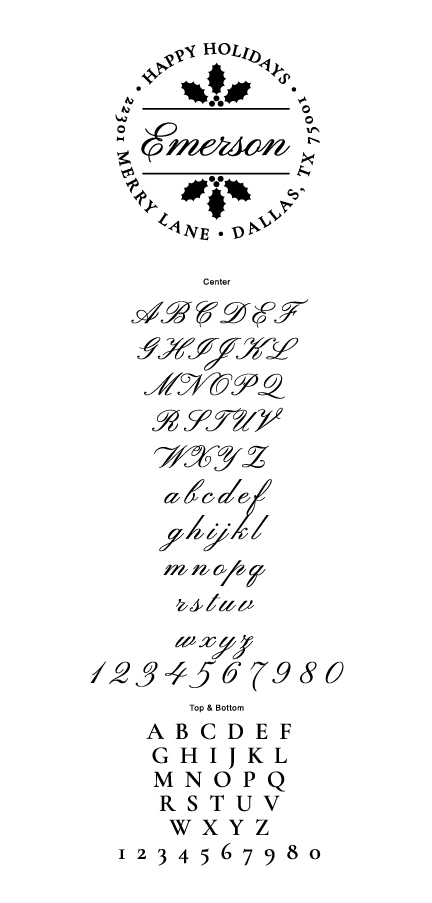 • HAPPY HOLIDAYS •
Emerson
22301 MERRY LANE • DALLAS, TX 75001
Center
A B C D E F
G H I J K L
M N O P Q
R S T U V
W X Y Z
a b c d e f
g h i j k l
m n o p q
r s t u v
w x y z
1 2 3 4 5 6 7 9 8 0
Top & Bottom
A B C D E F
G H I J K L
M N O P Q
R S T U V
W X Y Z
1 2 3 4 5 6 7 9 8 0